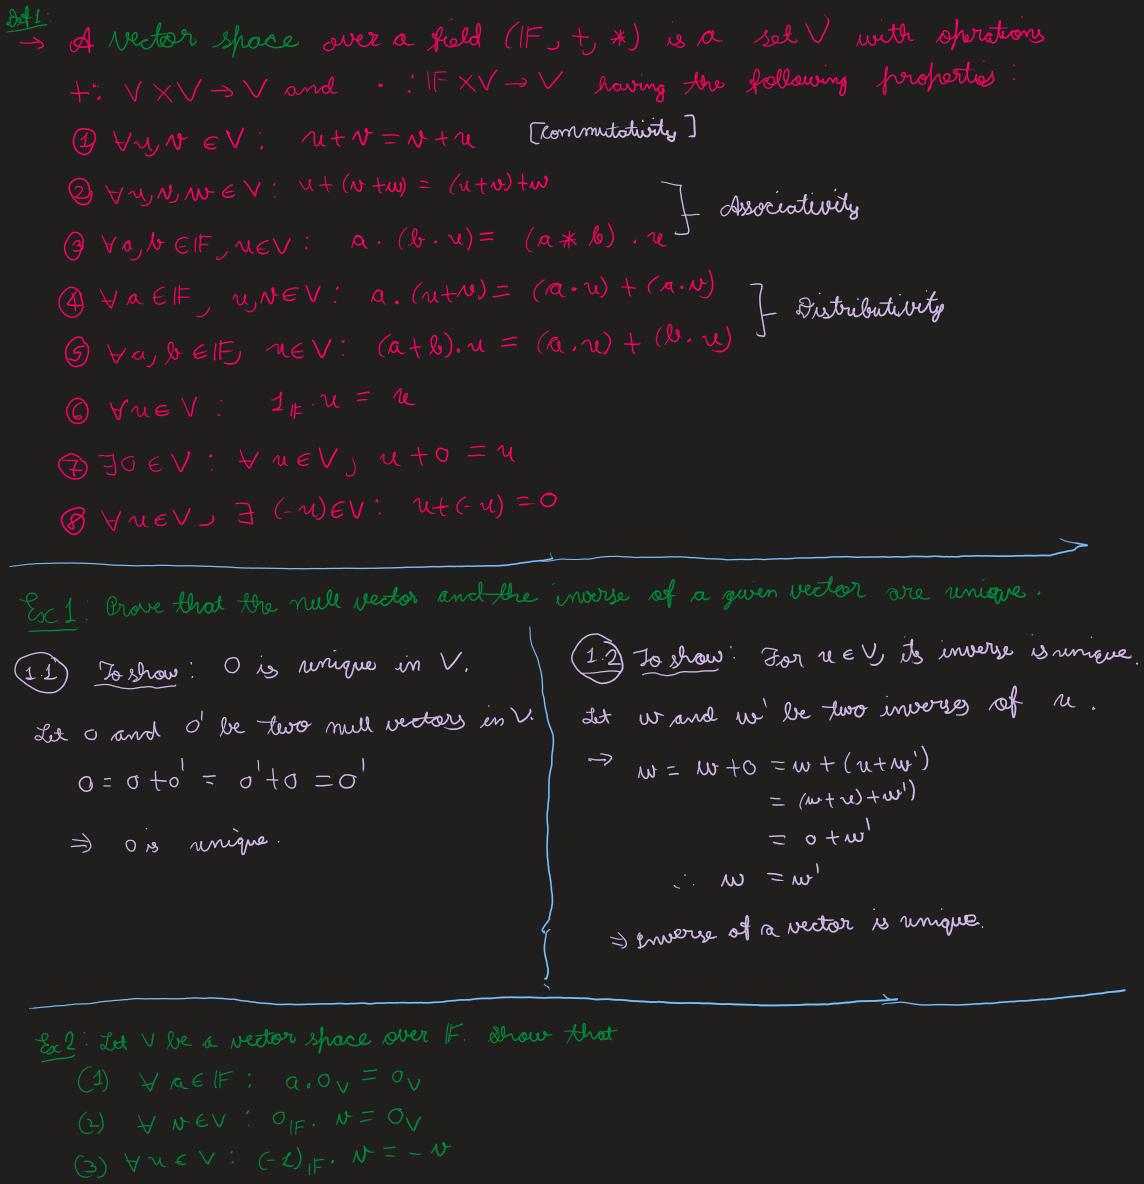 Def 1:
→ A vector space over a field (𝔽, +, *) is a set V with operations
+: V×V → V and · : 𝔽×V → V having the following properties :
① ∀u,v ∈ V : u+v = v+u [Commutativity]
② ∀u,v,w ∈ V : u+(v+w) = (u+v)+w
Associativity
③ ∀a,b ∈ 𝔽, u∈V : a·(b·u) = (a*b)·u
④ ∀a∈𝔽, u,v∈V : a·(u+v) = (a·u)+(a·v)
Distributivity
⑤ ∀a,b ∈𝔽, u∈V : (a+b)·u = (a·u)+(b·u)
⑥ ∀u∈V : 1_𝔽·u = u
⑦ ∃0∈V : ∀u∈V, u+0 = u
⑧ ∀u∈V, ∃(-u)∈V : u+(-u) = 0
Ex 1 : Prove that the null vector and the inverse of a given vector are unique.
1.1 To show : 0 is unique in V.
Let 0 and 0' be two null vectors in V.
0 = 0+0' = 0'+0 = 0'
⇒ 0 is unique.
1.2 To show : For u∈V, its inverse is unique.
Let w and w' be two inverses of u.
→ w = w+0 = w+(u+w')
= (w+u)+w')
= 0+w'
∴ w = w'
⇒ Inverse of a vector is unique.
Ex 2 : Let V be a vector space over 𝔽. Show that
(1) ∀a∈𝔽 : a·0_V = 0_V
(2) ∀v∈V : 0_𝔽·v = 0_V
(3) ∀u∈V : (-1)_𝔽·v = -v